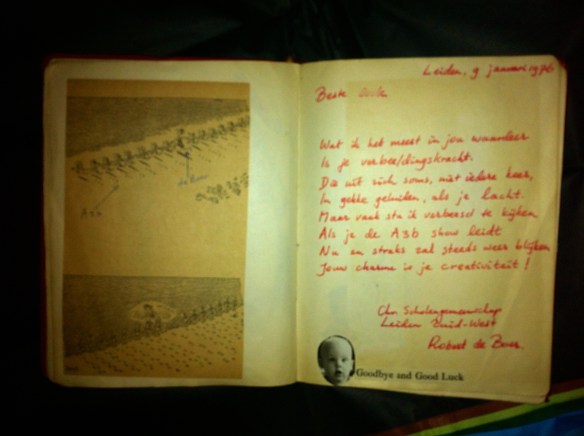 A3b
de Boer
Leiden, 9 januari 1976
Beste
Wat ik het meest in jou waardeer
Is je verbeeldingskracht.
Die uit zich soms, niet iedere keer,
In gekke geluiden, als je lacht.
Maar vaak sta ik verbaasd te kijken
Als je de A3b show leidt
Nu en straks zal steeds weer blijken
Jouw charme is je creativiteit!
Chr. Scholengemeenschap
Leiden Zuid-West
Robert de Boer.
Goodbye and Good Luck